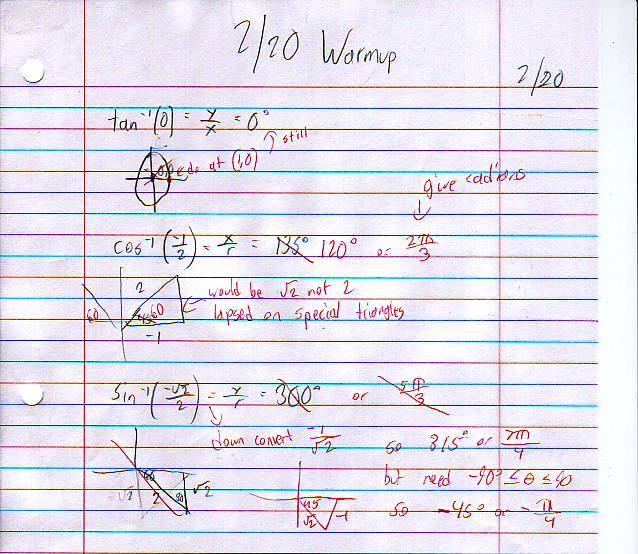 2/20 Warmup
2/20
tan⁻¹(0) = y/x = 0°
↑ still
at (1,0)
give radians
↓
cos⁻¹(-1/2) = x/r = 135° 120° or 2π/3
2
60
45 60
-1
← would be √2 not 2
lapsed on special triangles
sin⁻¹(-√2/2) = y/r = 300° or 5π/3
↓
down convert -1/√2 so 315° or 7π/4
but need -90° ≤ θ ≤ 90
so -45° or -π/4
60
√2 2 30 √2
45
√2 -1